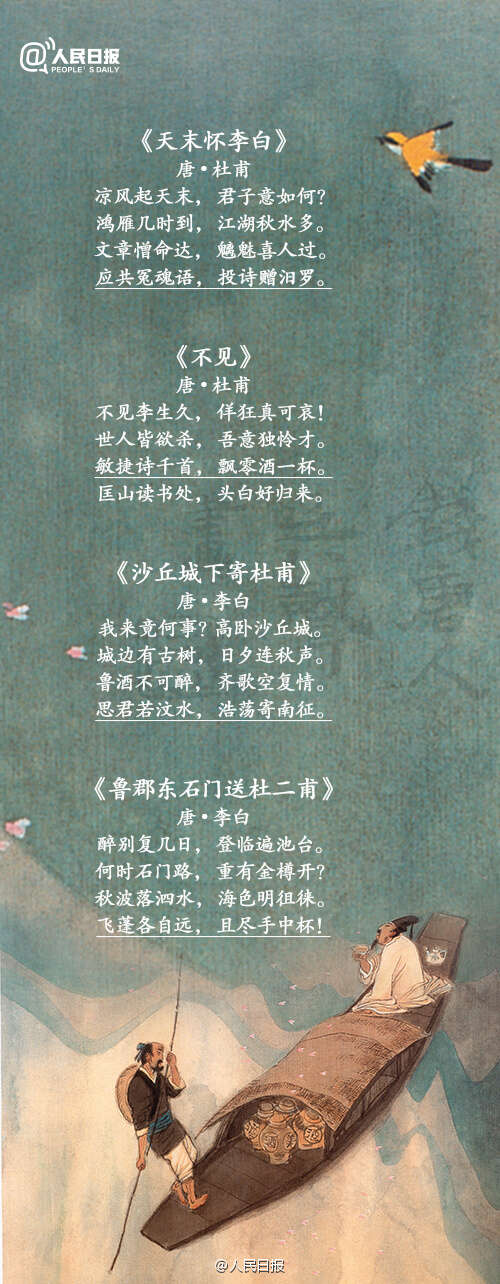 @人民日报
PEOPLE'S DAILY
《天末怀李白》
唐•杜甫
凉风起天末，君子意如何？
鸿雁几时到，江湖秋水多。
文章憎命达，魑魅喜人过。
应共冤魂语，投诗赠汨罗。
《不见》
唐•杜甫
不见李生久，佯狂真可哀！
世人皆欲杀，吾意独怜才。
敏捷诗千首，飘零酒一杯。
匡山读书处，头白好归来。
《沙丘城下寄杜甫》
唐•李白
我来竟何事？高卧沙丘城。
城边有古树，日夕连秋声。
鲁酒不可醉，齐歌空复情。
思君若汶水，浩荡寄南征。
《鲁郡东石门送杜二甫》
唐•李白
醉别复几日，登临遍池台。
何时石门路，重有金樽开？
秋波落泗水，海色明徂徕。
飞蓬各自远，且尽手中杯！
@人民日报